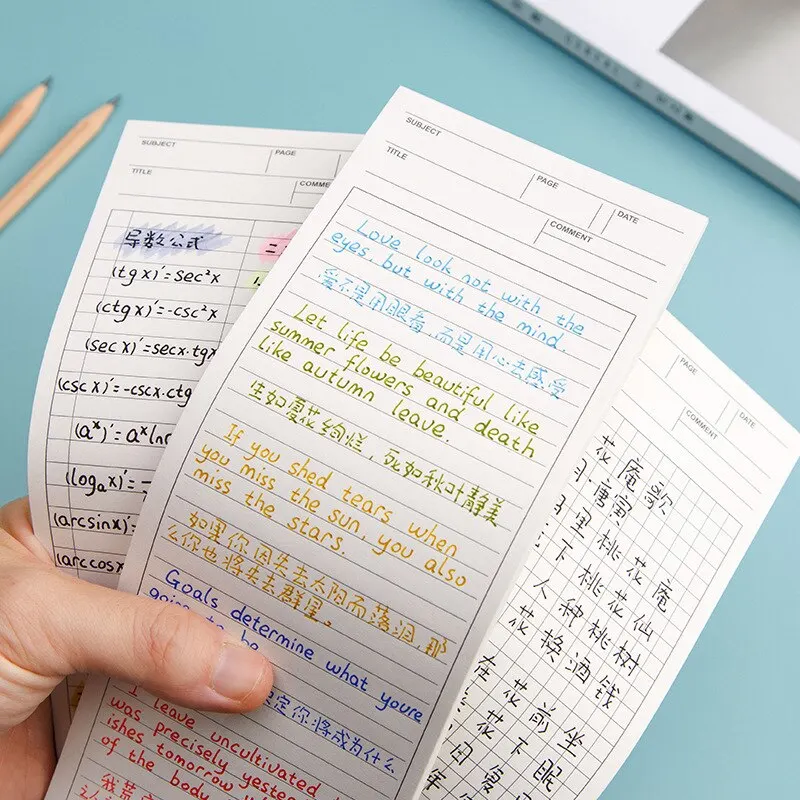 SUBJECT
PAGE
TITLE
COMME
导数公式
二
(tgx)'=sec²x
(ctgx)'=-csc²x
(secx)'=secx·tgx
(cscx)'=-cscx·ctg
(aˣ)'=aˣln
(logₐx)'=
(arcsinx)'=
(arccosx)'
SUBJECT
PAGE
DATE
TITLE
COMMENT
Love look not with the
eyes, but with the mind.
爱不是用眼看,而是用心去感受
Let life be beautiful like
summer flowers and death
like autumn leave.
生如夏花绚烂,死如秋叶静美
If you shed tears when
you miss the sun, you also
miss the stars.
如果你因失去太阳而落泪,那
么你也将失去群星。
Goals determine what youre
going to be
定你将成为什么
I leave uncultivated
was precisely yester
ishes tomorrow
of the body
我荒
PAGE
DATE
COMMENT
花庵歌
唐寅
里桃花庵
下桃花仙
人种桃树
花换酒钱
在花前坐
花下眠
日复
年